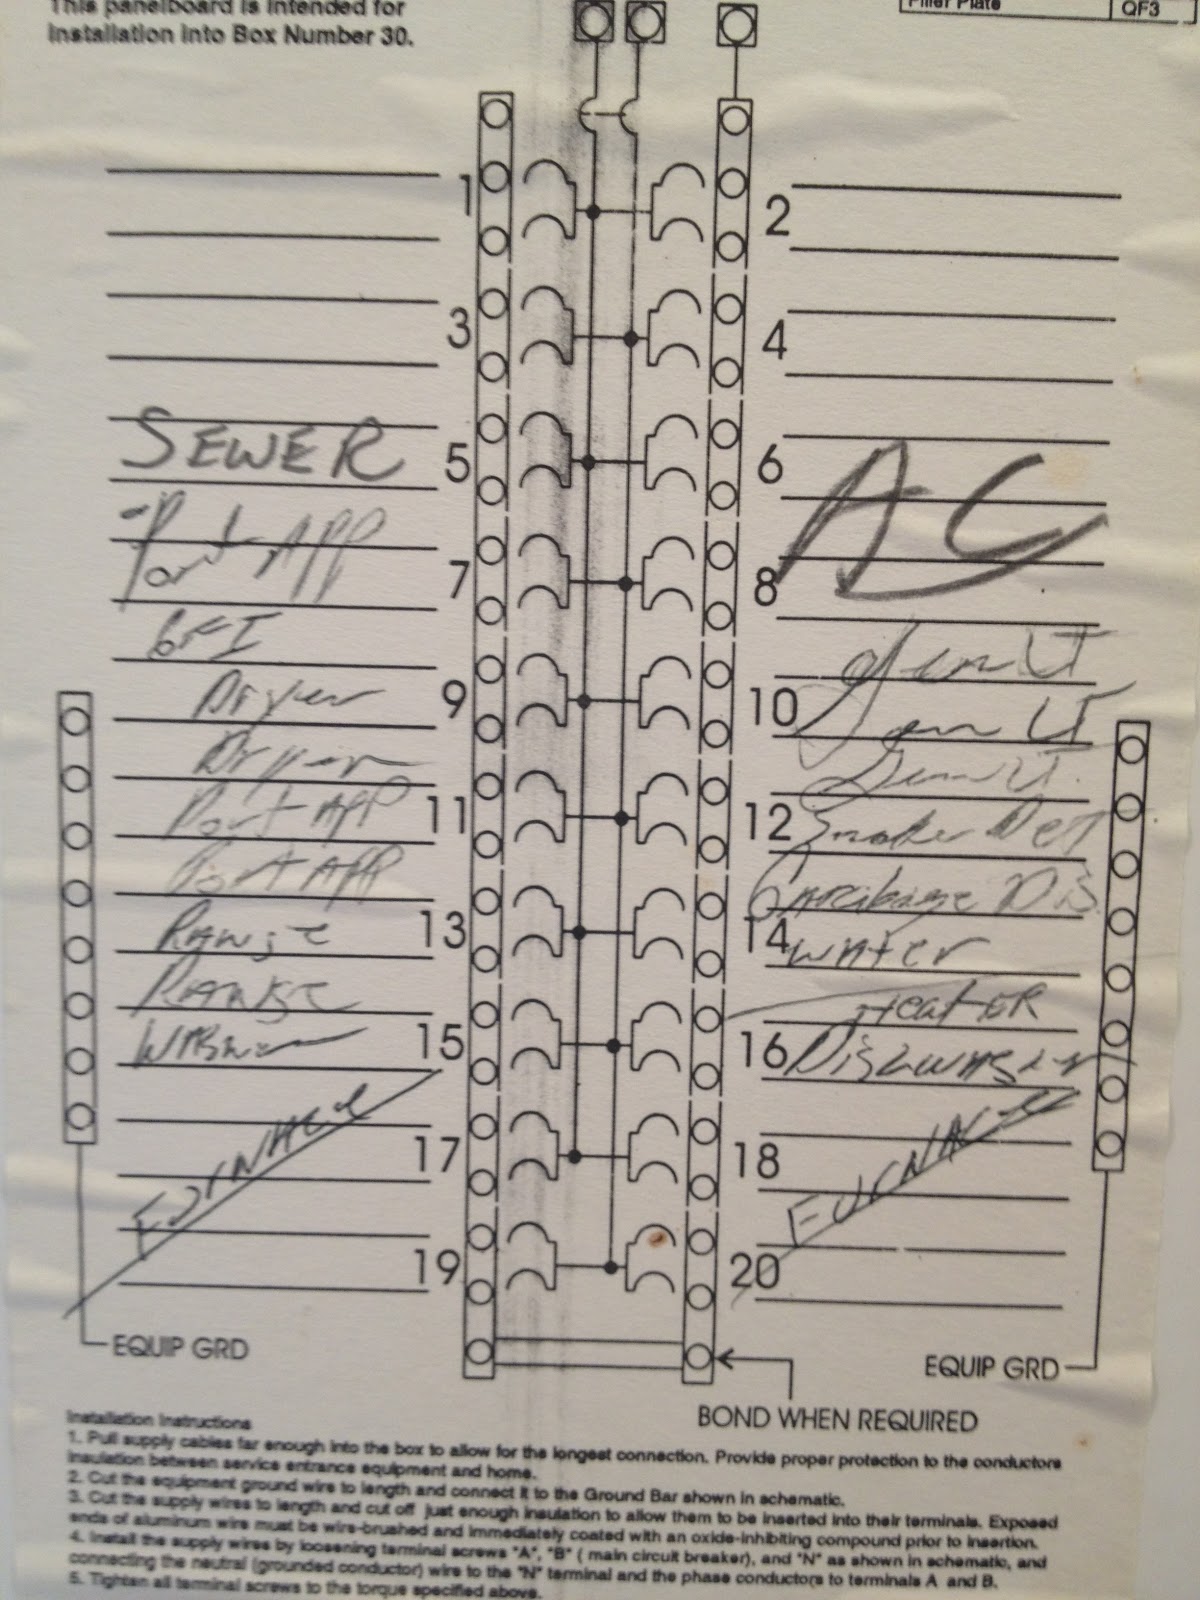 This panelboard is intended for
installation into Box Number 30.
Filler Plate QF3
1 2
3 4
SEWER 5 6
AC
Port APP 7 8
GFI Gen LT
Dryer 9 10 Gen LT
Dryer Gen LT.
Port APP 11 12 Smoke Det
Port APP Garbage Dis.
Range 13 14 water
Range Heater
15 16
Furnace Furnace
17 18
19 20
EQUIP GRD
EQUIP GRD
BOND WHEN REQUIRED
Installation Instructions
1. Pull supply cables far enough into the box to allow for the longest connection. Provide proper protection to the conductors
insulation between service entrance equipment and home.
2. Cut the equipment ground wire to length and connect it to the Ground Bar shown in schematic.
3. Cut the supply wires to length and cut off just enough insulation to allow them to be inserted into their terminals. Exposed
ends of aluminum wire must be wire-brushed and immediately coated with an oxide-inhibiting compound prior to insertion.
4. Install the supply wires by loosening terminal screws "A", "B" ( main circuit breaker), and "N" as shown in schematic, and
connecting the neutral (grounded conductor) wire to the "N" terminal and the phase conductors to terminals A and B.
5. Tighten all terminal screws to the torque specified above.